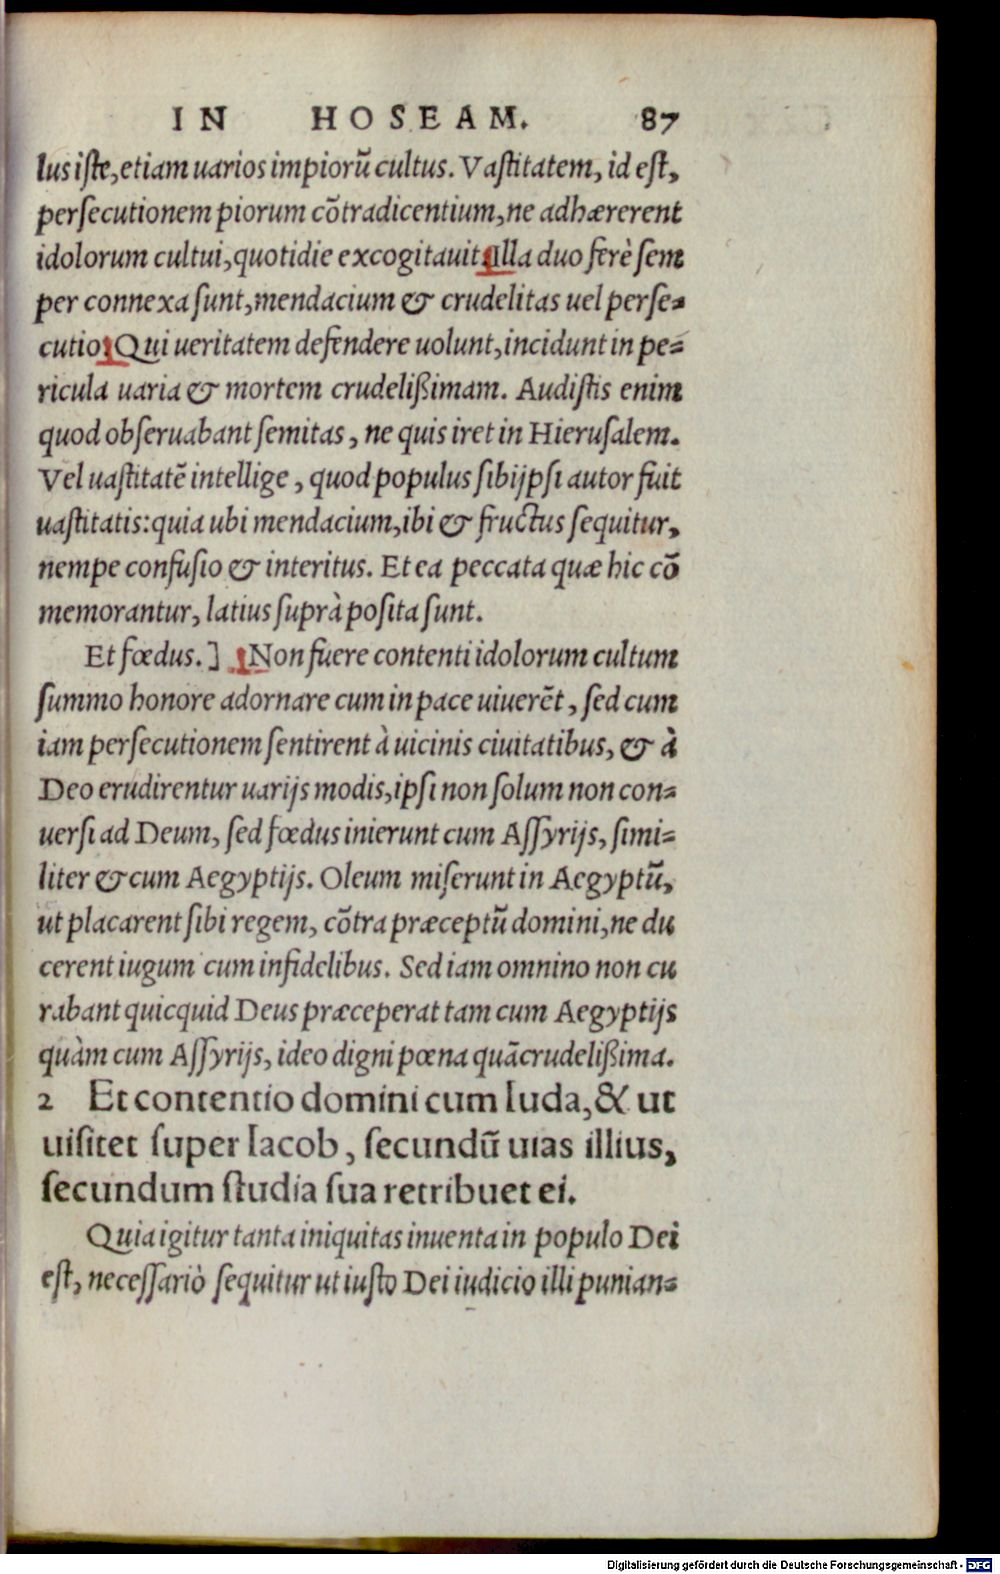 IN HOSEAM. 87
lus iſte, etiam uarios impiorũ cultus. Vaſtitatem, id eſt,
perſecutionem piorum cõtradicentium, ne adhærerent
idolorum cultui, quotidie excogitauit. Illa duo ferè ſem
per connexa ſunt, mendacium & crudelitas uel perſe-
cutio. Qui ueritatem defendere uolunt, incidunt in pe-
ricula uaria & mortem crudelißimam. Audiſtis enim
quod obſeruabant ſemitas, ne quis iret in Hieruſalem.
Vel uaſtitatẽ intellige, quod populus ſibijpſi autor fuit
uaſtitatis: quia ubi mendacium, ibi & fructus ſequitur,
nempe confuſio & interitus. Et ea peccata quæ hic cõ
memorantur, latius ſuprà poſita ſunt.
Et fœdus.] Non fuere contenti idolorum cultum
ſummo honore adornare cum in pace uiuerẽt, ſed cum
iam perſecutionem ſentirent à uicinis ciuitatibus, & à
Deo erudirentur uarijs modis, ipſi non ſolum non con-
uerſi ad Deum, ſed fœdus inierunt cum Aſſyrijs, ſimi-
liter & cum Aegyptijs. Oleum miſerunt in Aegyptũ,
ut placarent ſibi regem, cõtra præceptũ domini, ne du
cerent iugum cum infidelibus. Sed iam omnino non cu
rabant quicquid Deus præceperat tam cum Aegyptijs
quàm cum Aſſyrijs, ideo digni pœna quã crudelißima.
2 Et contentio domini cum Iuda, & ut
uiſitet ſuper Iacob, ſecundũ uias illius,
ſecundum ſtudia ſua retribuet ei.
Quia igitur tanta iniquitas inuenta in populo Dei
eſt, neceſſariò ſequitur ut iuſto Dei iudicio illi punian-
Digitalisierung gefördert durch die Deutsche Forschungsgemeinschaft - DFG